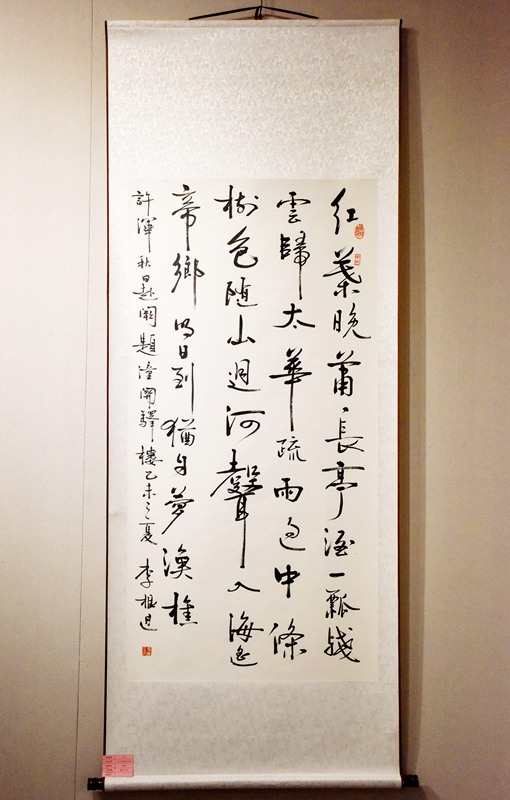 紅葉晚蕭〻長亭酒一瓢殘
雲歸太華疏雨過中條
樹色随山迥河聲入海遙
帝鄉明日到猶自夢漁樵
許渾秋日赴闕題潼關驛樓乙未之夏 李